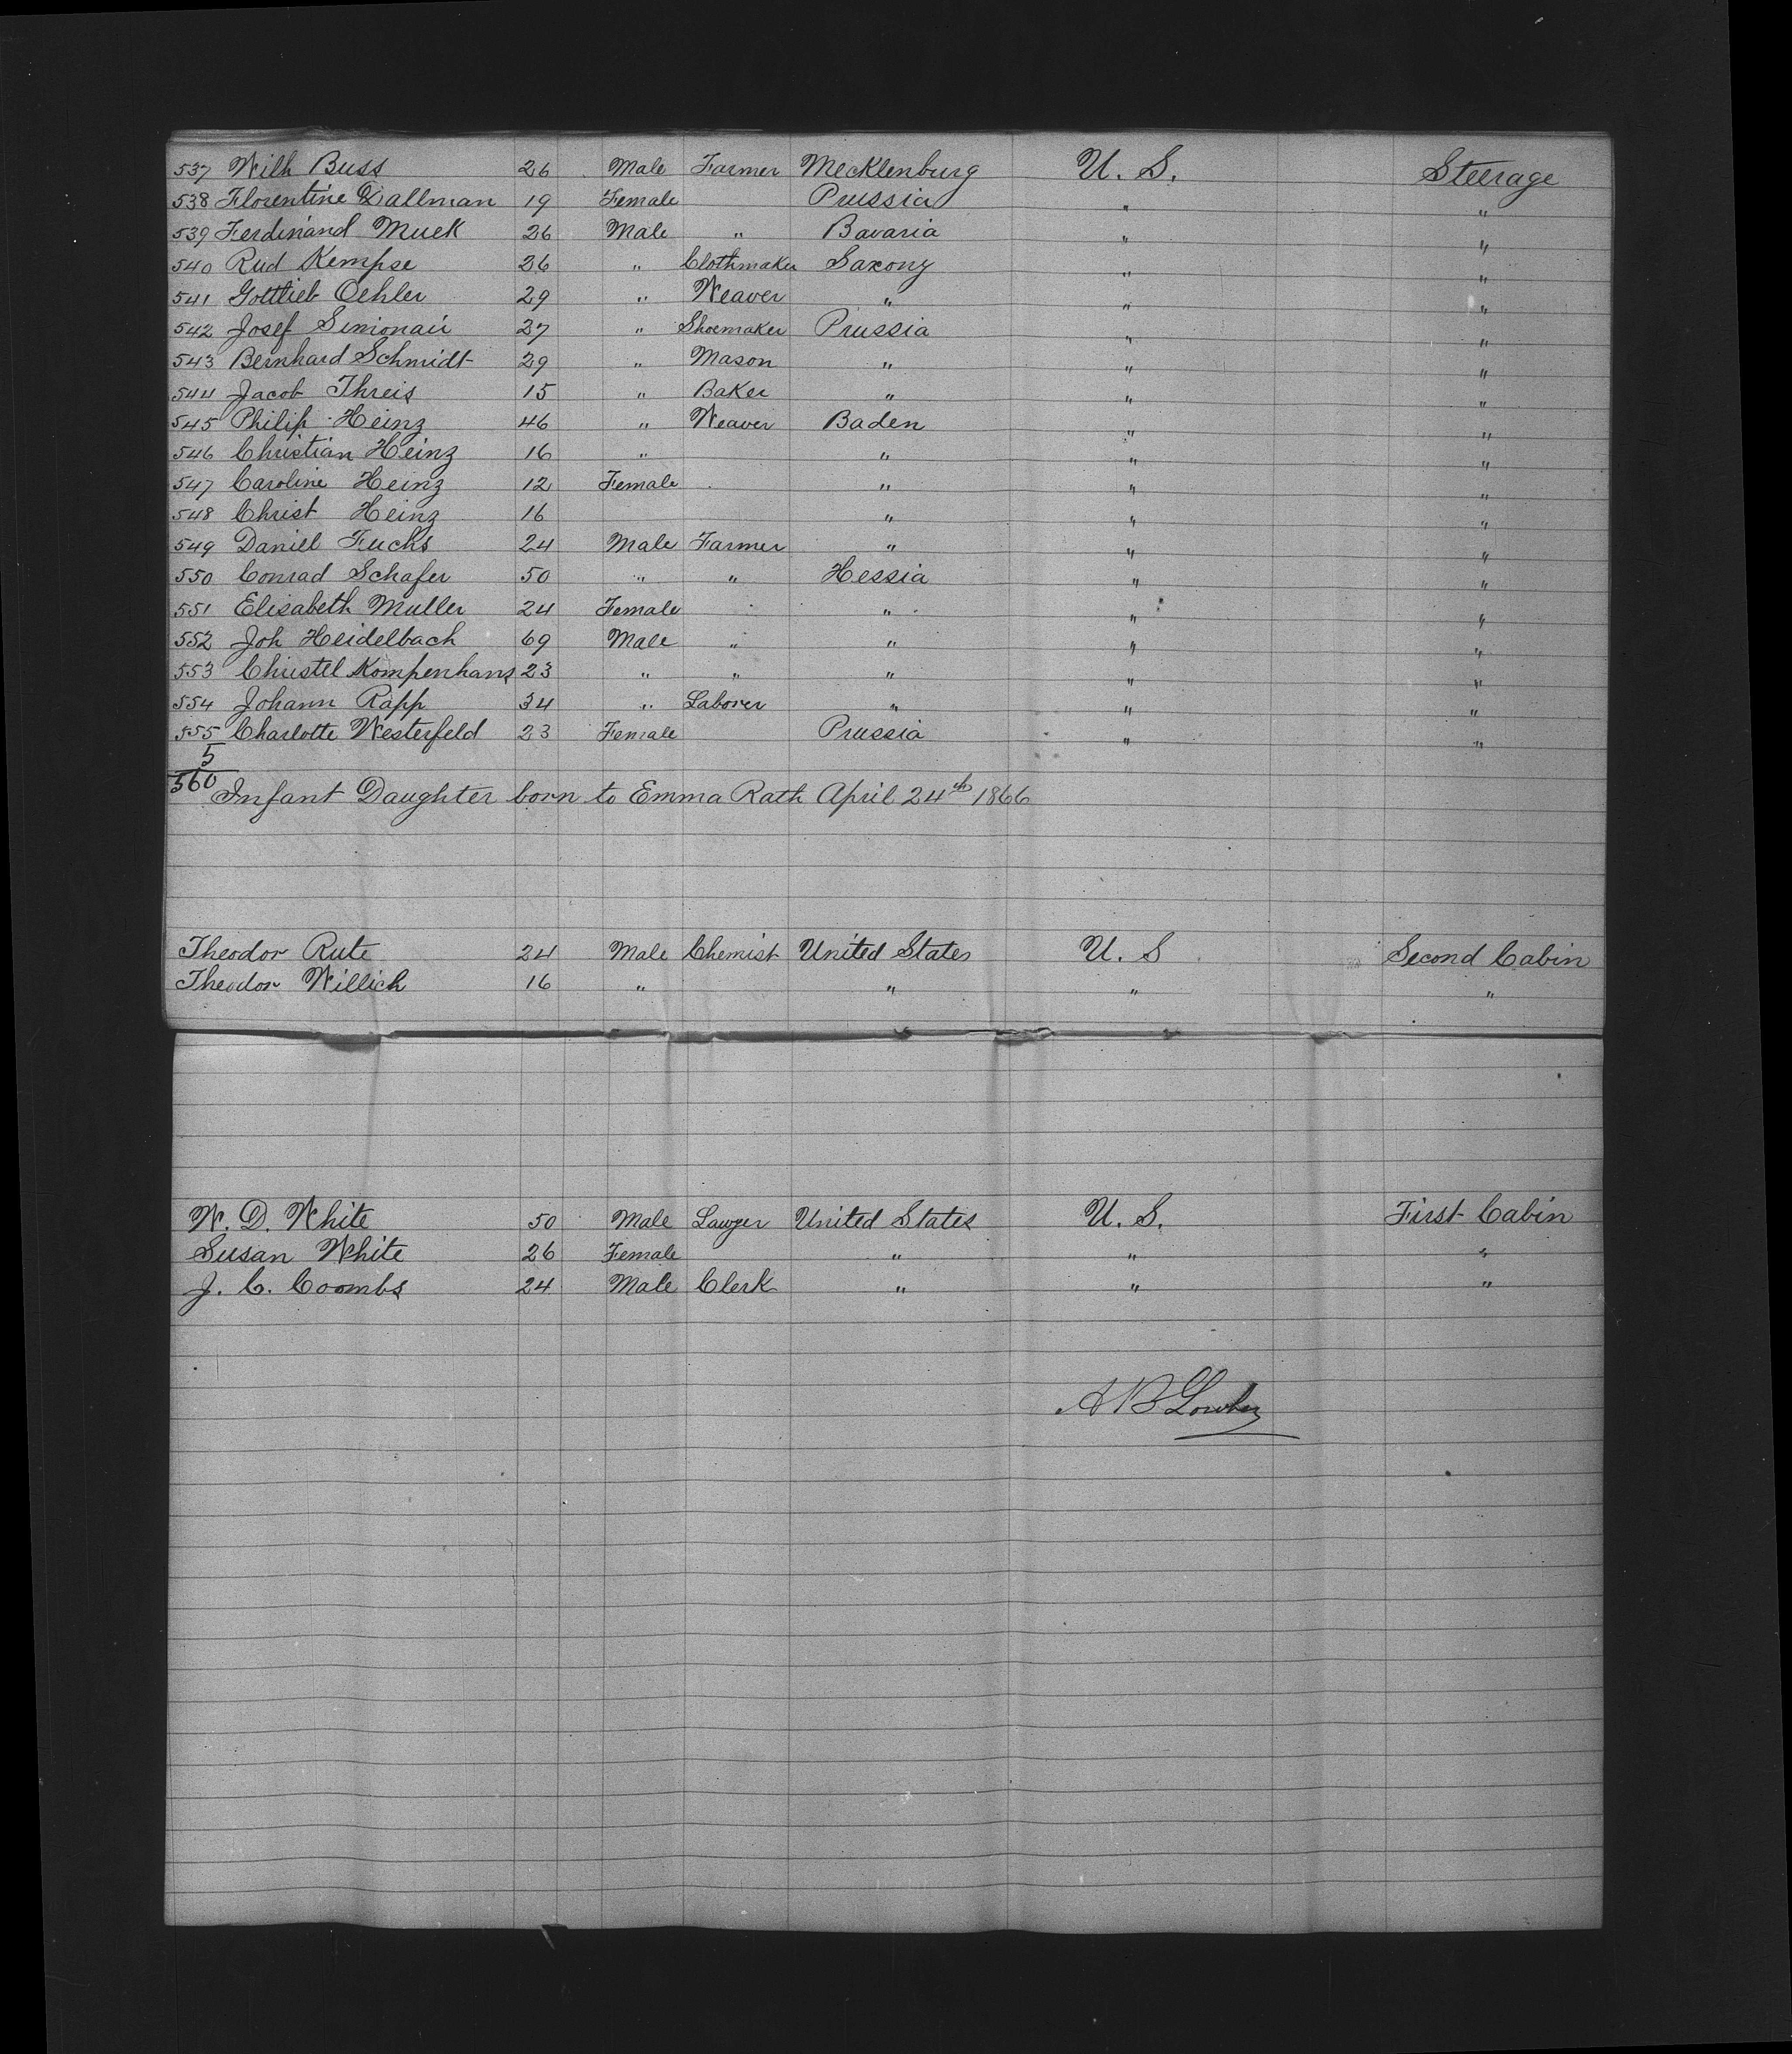 537 Wilh Buss 26 Male Farmer Mecklenburg U. S. Steerage
538 Florentine Dallman 19 Female Prussia " "
539 Ferdinand Muck 26 Male " Bavaria " "
540 Rud Kempse 26 " Clothmaker Saxony " "
541 Gottlieb Oehler 29 " Weaver " " "
542 Josef 27 " Shoemaker Prussia " "
543 Bernhard Schmidt 29 " Mason " " "
544 Jacob Threis 15 " Baker " " "
545 Philip Heinz 46 " Weaver Baden " "
546 Christian Heinz 16 " " " "
547 Caroline Heinz 12 Female " " "
548 Christ Heinz 16 " " "
549 Daniel Fuchs 24 Male Farmer " " "
550 Conrad Schafer 50 " " Hessia " "
551 Elisabeth Muller 24 Female " " "
552 Joh Heidelbach 69 Male " " " "
553 Christel Kompenhans 23 " " " " "
554 Johann Rapp 34 " Laborer " " "
555 Charlotte Westerfeld 23 Female Prussia " "
5
560
Infant Daughter born to Emma Rath April 24th 1866
Theodor Rute 24 Male Chemist United States U. S Second Cabin
Theodor Willich 16 " " " "
W. D. White 50 Male Lawyer United States U. S. First Cabin
Susan White 26 Female " " "
J. C. Coombs 24 Male Clerk " " "